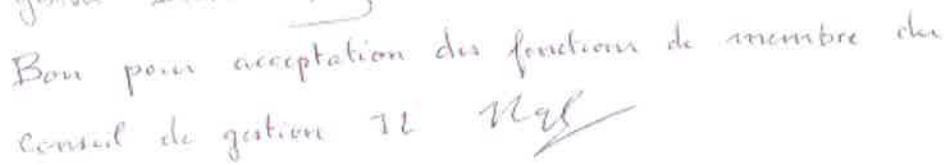 Bon pour acceptation des fonctions de membre du
conseil de gestion